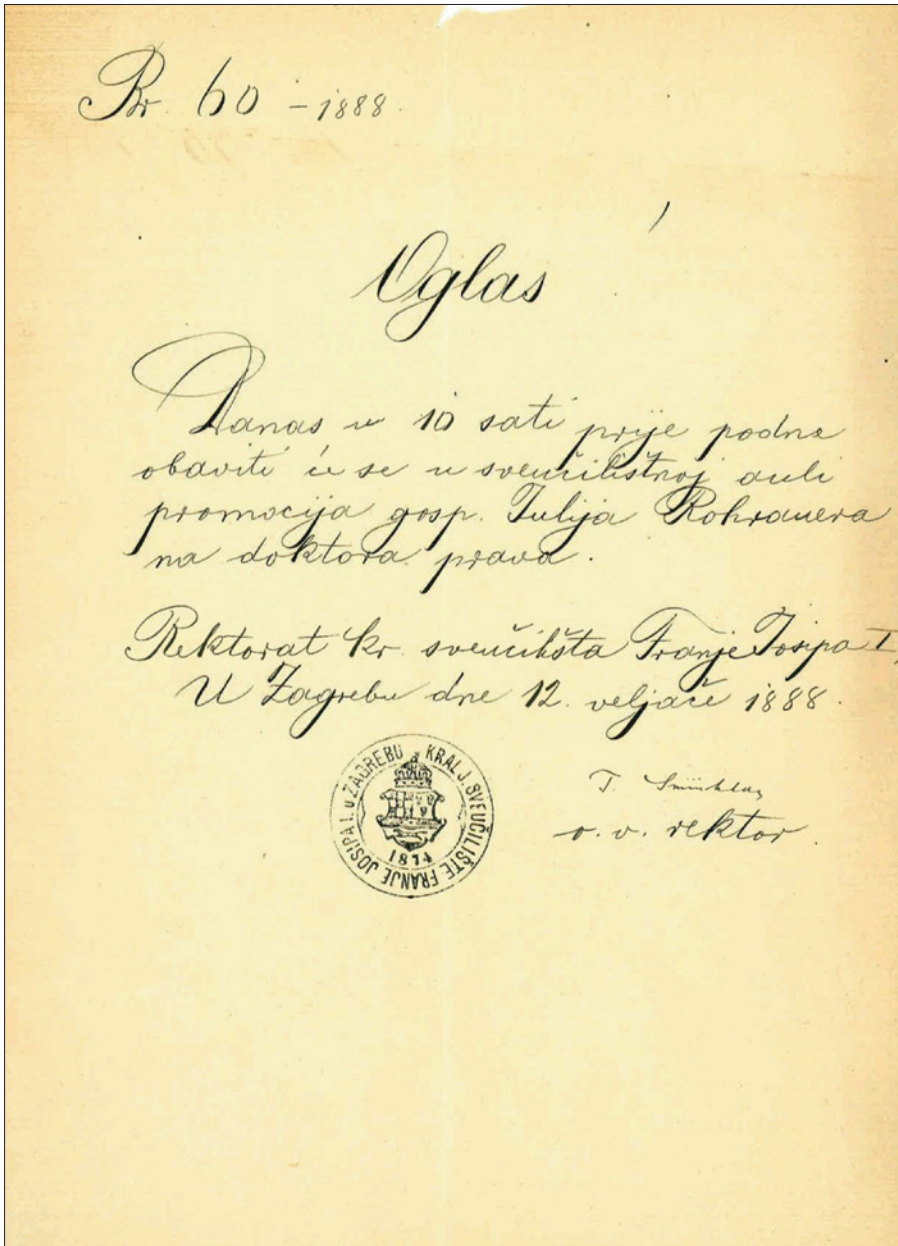 Br. 60 - 1888.
Oglas
Danas u 10 sati prije podne
obaviti će se u sveučilištnoj auli
promocija gosp. Julija Rohrauera
na doktora prava.
Rektorat kr. sveučilišta Franje Josipa I.
U Zagrebu dne 12. veljače 1888.
T. Smičiklas
o. v. rektor
KRALJ. SVEUČILIŠTE FRANJE JOSIPA I. U ZAGREBU
1874